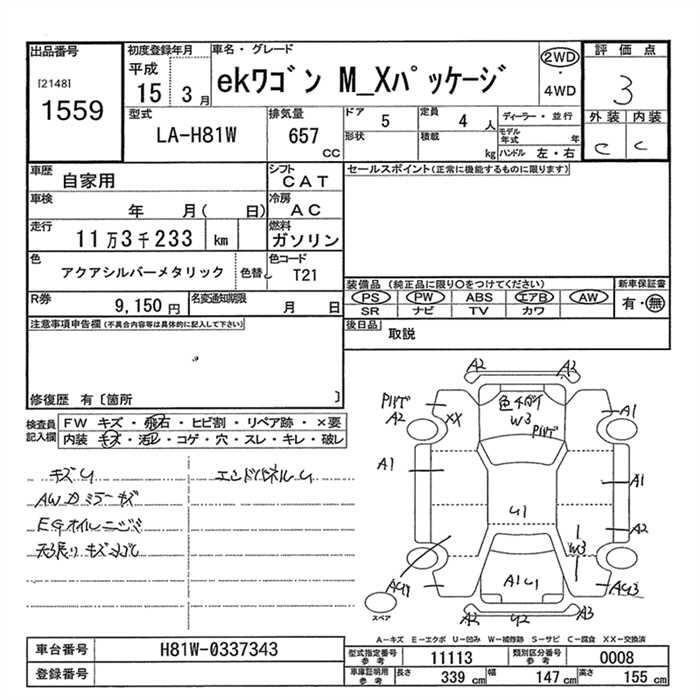 出品番号
[2148]
1559
初度登録年月
平成
15 3月
車名・グレード
ekワゴン M_Xパッケージ
2WD
・
4WD
評価点
3
外装 内装
C C
型式
LA-H81W
排気量
657
CC
ドア 5
定員 4 人
形状
積載 kg
ディーラー・並行
モデル年式 年
ハンドル 左・右
車歴
自家用
シフト
CAT
セールスポイント(正常に機能するものに限ります)
車検
年 月( 日)
冷房
AC
走行
11万3千233 km
燃料
ガソリン
色
アクアシルバーメタリック
色替
色コード
T21
装備品 (純正品に限り〇をつけてください)
PS PW ABS エアB AW
SR ナビ TV カワ
新車保証書
有・無
R券
9,150 円
名変通知期限
月 日
後日品
取説
注意事項申告欄(不具合内容等は具体的に記入して下さい)
修復歴 有〔箇所 〕
検査員記入欄
FW キズ・飛石・ヒビ割・リペア跡・×要
内装 キズ・汚レ・コゲ・穴・スレ・キレ・破レ
キズU
エンドパネルU
AWカミラーキズ
EGオイルニジミ
A2 A2
A2
XX
色チガイ
W3
A1
A1
A1
U1
A2
W3
A1U1
AU3
A2 U2 A3
スペア
A-キズ E-エクボ U-凹み W-補修跡 S-サビ C-腐食 XX-交換済
車台番号 H81W-0337343
登録番号
型式指定番号 参考 11113
類別区分番号 参考 0008
車庫証明用 参考
長さ 339 cm 幅 147 cm 高さ 155 cm